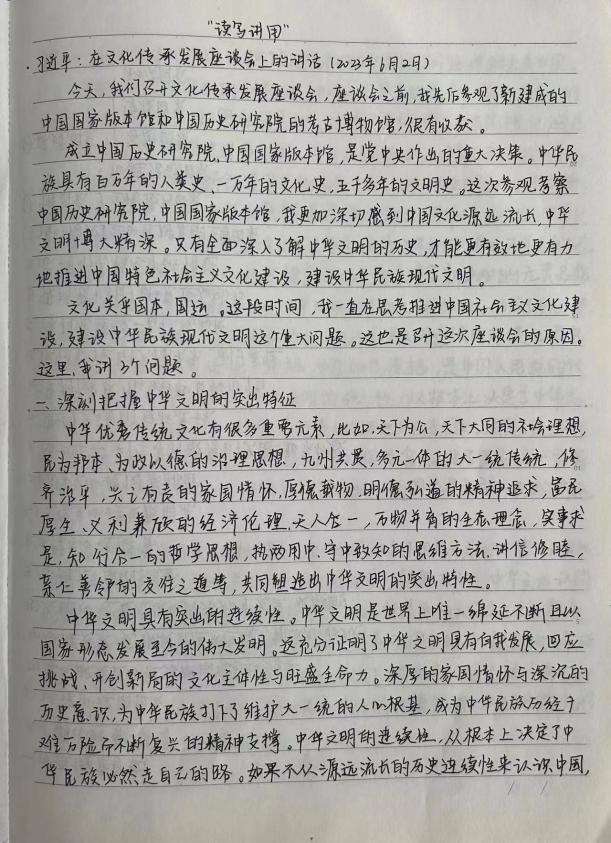 “读写讲用”
·习近平：在文化传承发展座谈会上的讲话（2023年6月2日）
今天，我们召开文化传承发展座谈会，座谈会之前，我先后参观了新建成的
中国国家版本馆和中国历史研究院的考古博物馆，很有收获。
成立中国历史研究院，中国国家版本馆，是党中央作出的重大决策。中华民
族具有百万年的人类史、一万年的文化史，五千多年的文明史。这次参观考察
中国历史研究院，中国国家版本馆，我更加深切感到中国文化源远流长，中华
文明博大精深。只有全面深入了解中华文明的历史，才能更有效地更有力
地推进中国特色社会主义文化建设，建设中华民族现代文明。
文化关乎国本，国运。这段时间，我一直在思考推进中国社会主义文化建
设，建设中华民族现代文明这个重大问题。这也是召开这次座谈会的原因。
这里，我讲3个问题。
一、深刻把握中华文明的突出特征
中华优秀传统文化有很多重要元素，比如，天下为公，天下大同的社会理想，
民为邦本、为政以德的治理思想，九州共贯，多元一体的大一统传统，修
齐治平，兴亡有责的家国情怀，厚德载物，明德弘道的精神追求，富民
厚生、义利兼顾的经济伦理，天人合一，万物并育的生态理念，实事求
是，知行合一的哲学思想，执两用中，守中致和的思维方法，讲信修睦，
亲仁善邻的交往之道等，共同组造出中华文明的突出特性。
中华文明具有突出的连续性。中华文明是世界上唯一绵延不断且以
国家形态发展至今的伟大发明。这充分证明了中华文明具有自我发展，回应
挑战、开创新局的文化主体性与旺盛生命力。深厚的家国情怀与深沉的
历史意识，为中华民族打下了维护大一统的人心根基，成为中华民族历经千
难万险而不断复兴的精神支撑。中华文明的连续性，从根本上决定了中
华民族必然走自己的路。如果不从源远流长的历史连续性来认识中国，